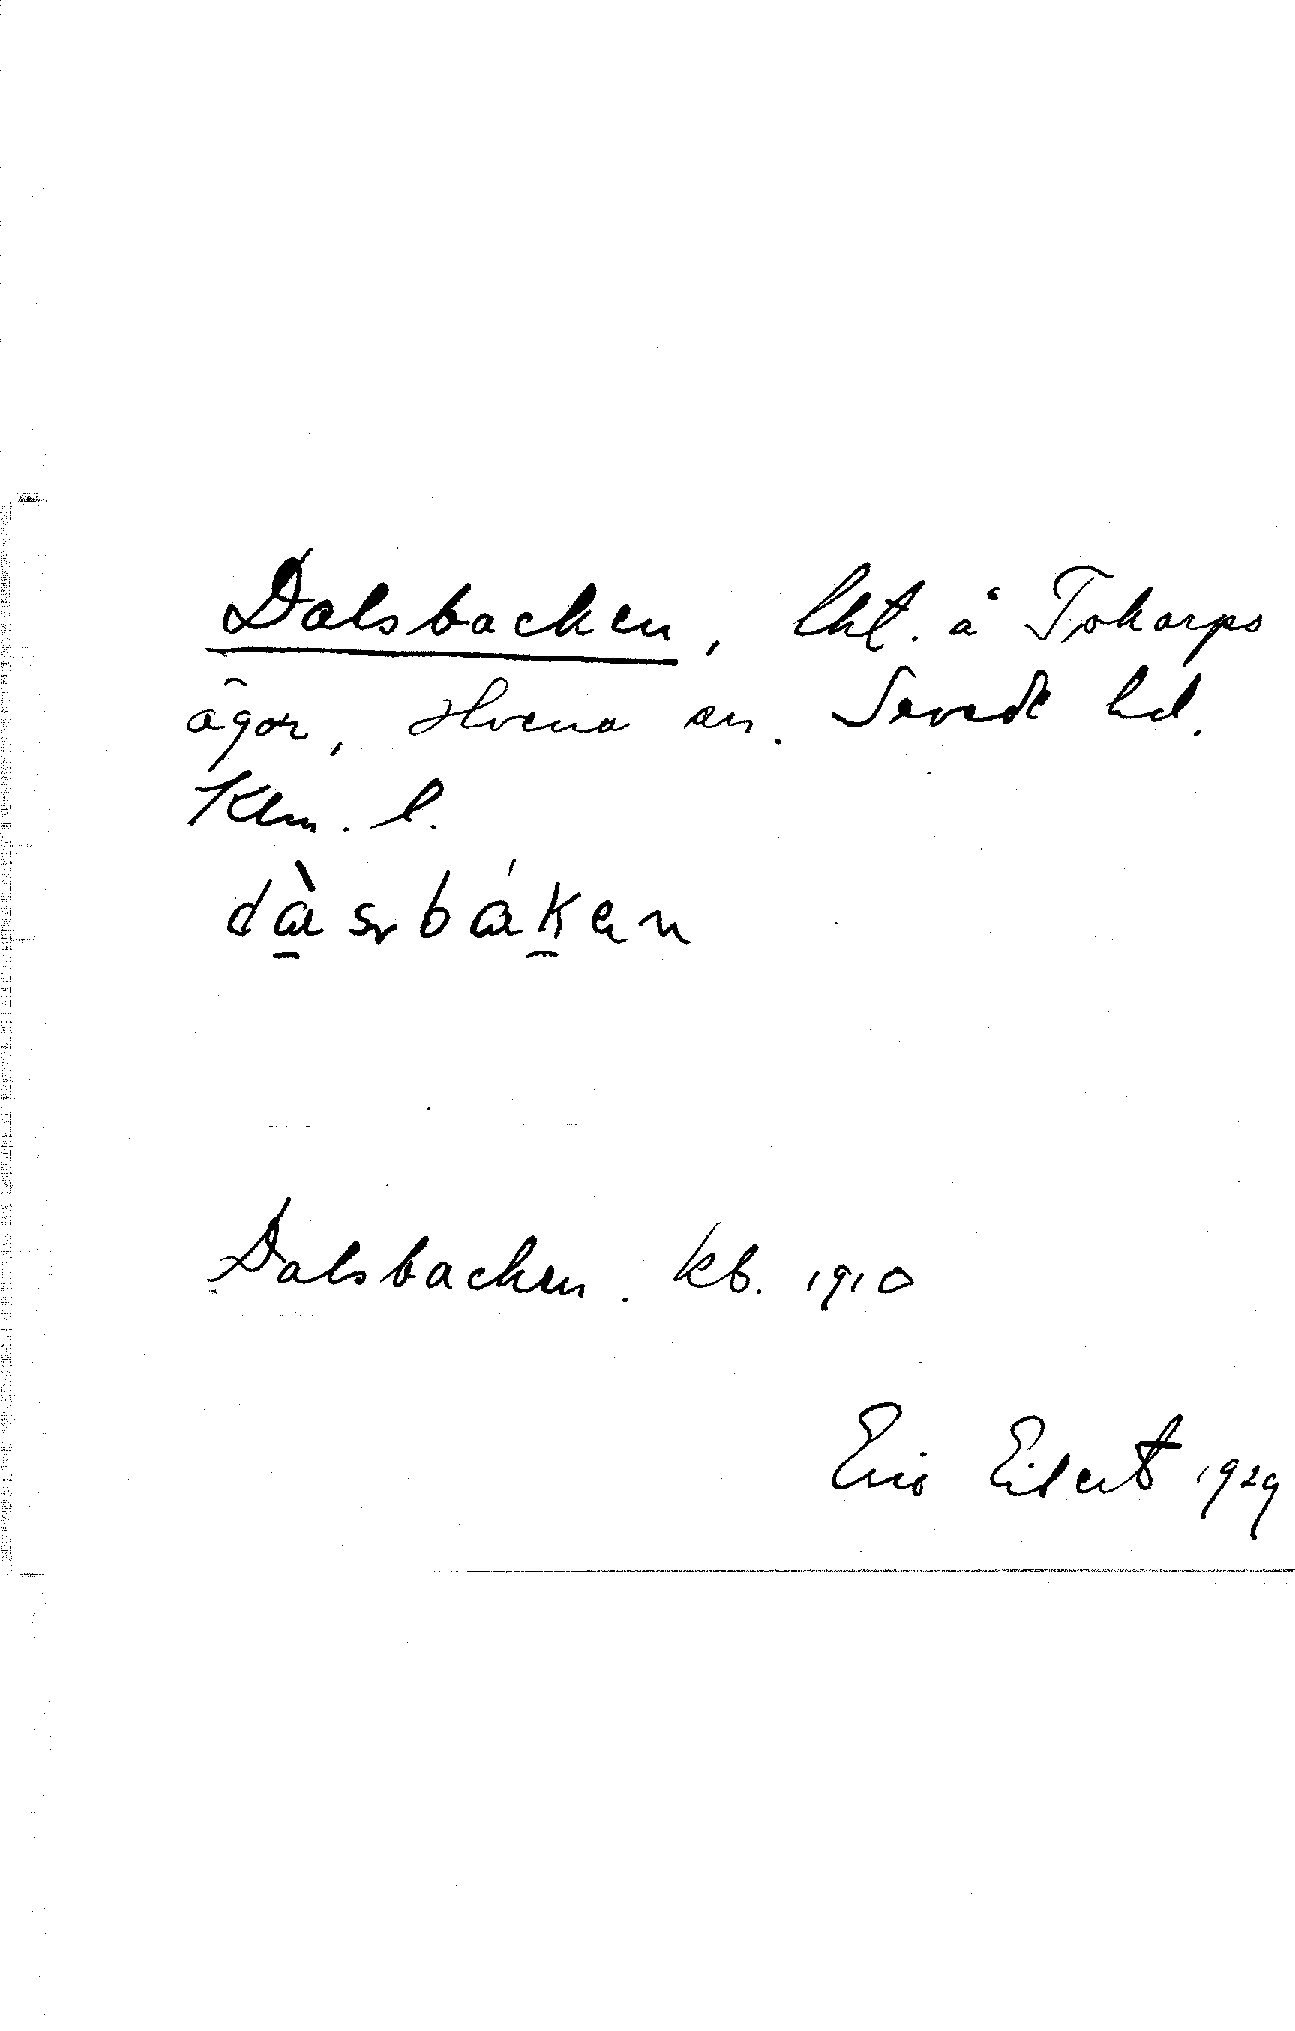 Dalsbacken, lht. å Tokarps
ägor, Hvena sn. Sevede hd.
Klm. l.
dàsbákẹn
Dalsbacken. kb. 1910
Eric Eilert 1929